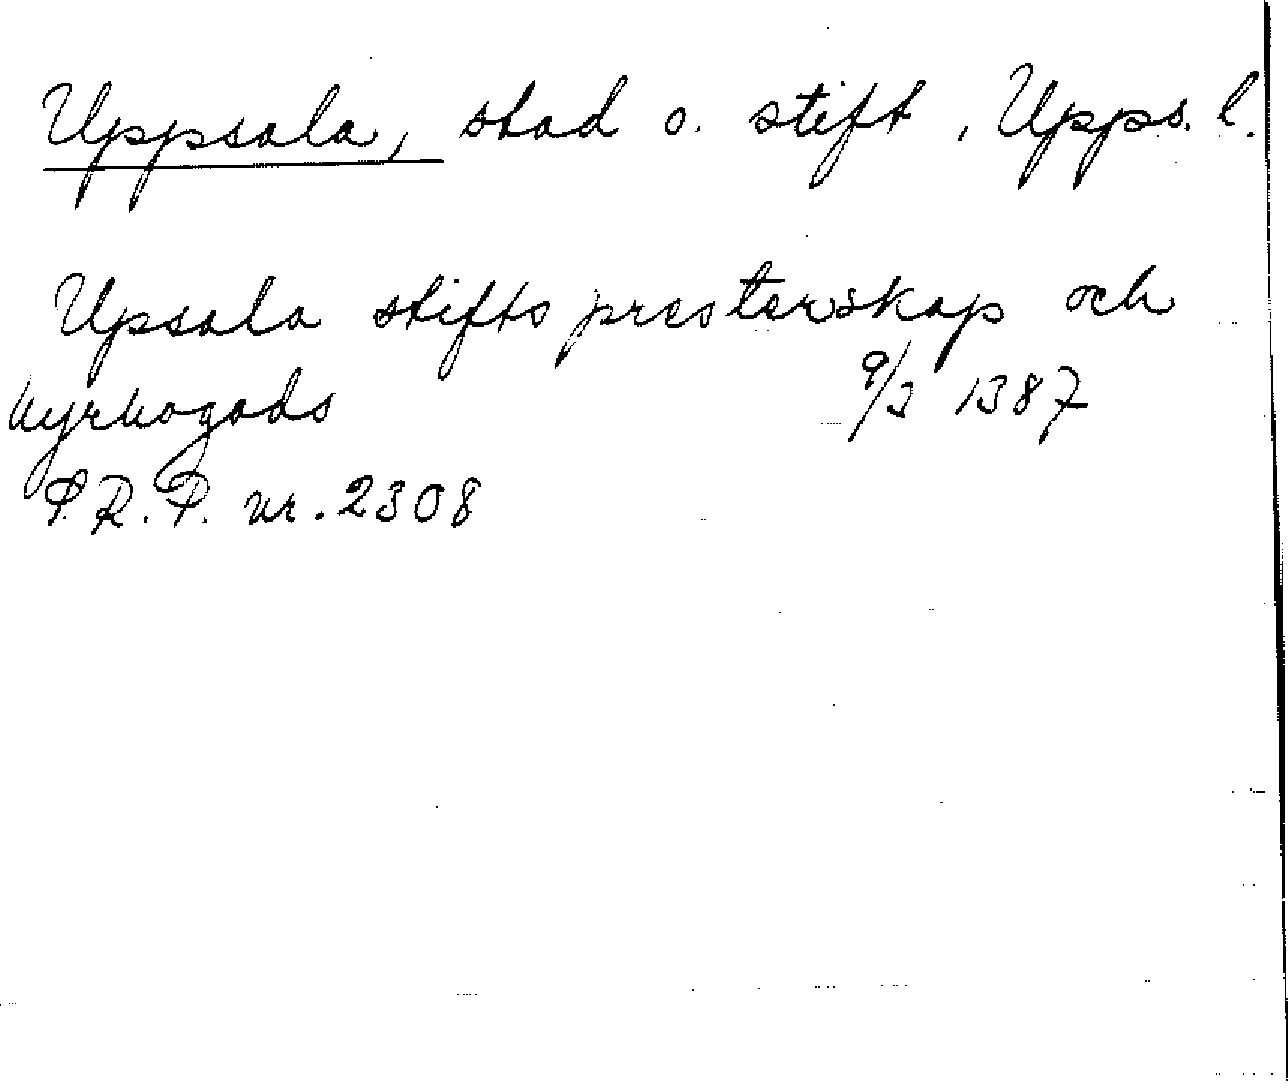 Uppsala, stad o. stift, Upps. l.
Upsala stifts presterskap och
kyrkogods 9/3 1387
S.R.P. nr. 2308